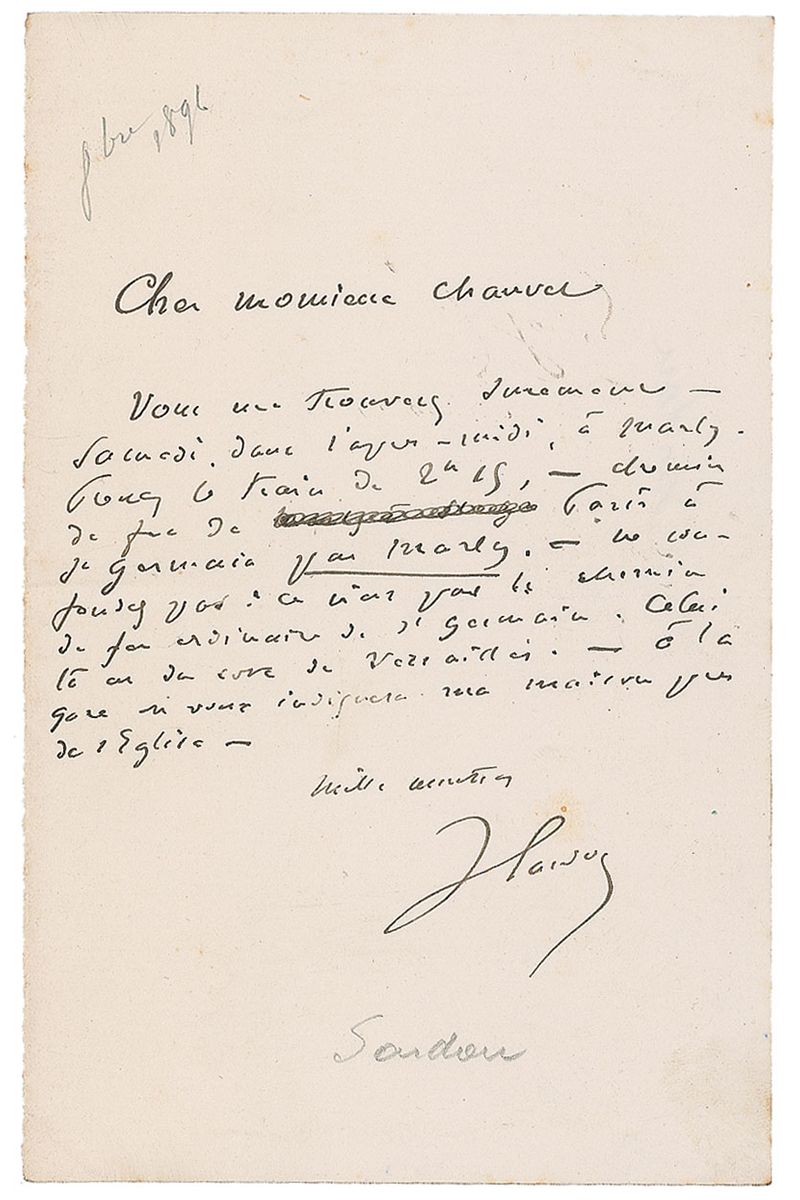 8 bre 1896
Cher monsieur Chauvet
Vous me trouverez surement —
Samedi, dans l'après-midi, à Marly.
Prenez le train de 2h 15, — chemin
de fer de Paris à
St Germain par Marly. — ne con-
fondez pas : ce n'est pas le chemin
de fer ordinaire de St Germain. Celui
là est du coté de Versailles. — à la
gare on vous indiquera ma maison près
de l'Eglise —
Mille amitiés
V Sardou
Sardou